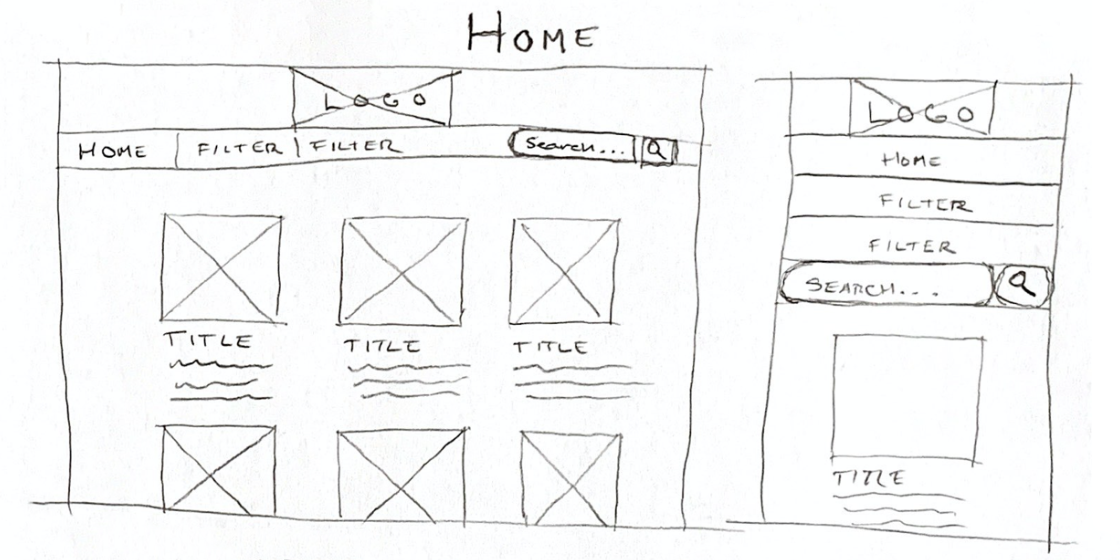 HOME
LOGO
HOME | FILTER | FILTER
Search...
TITLE TITLE TITLE
LOGO
HOME
FILTER
FILTER
SEARCH...
TITLE